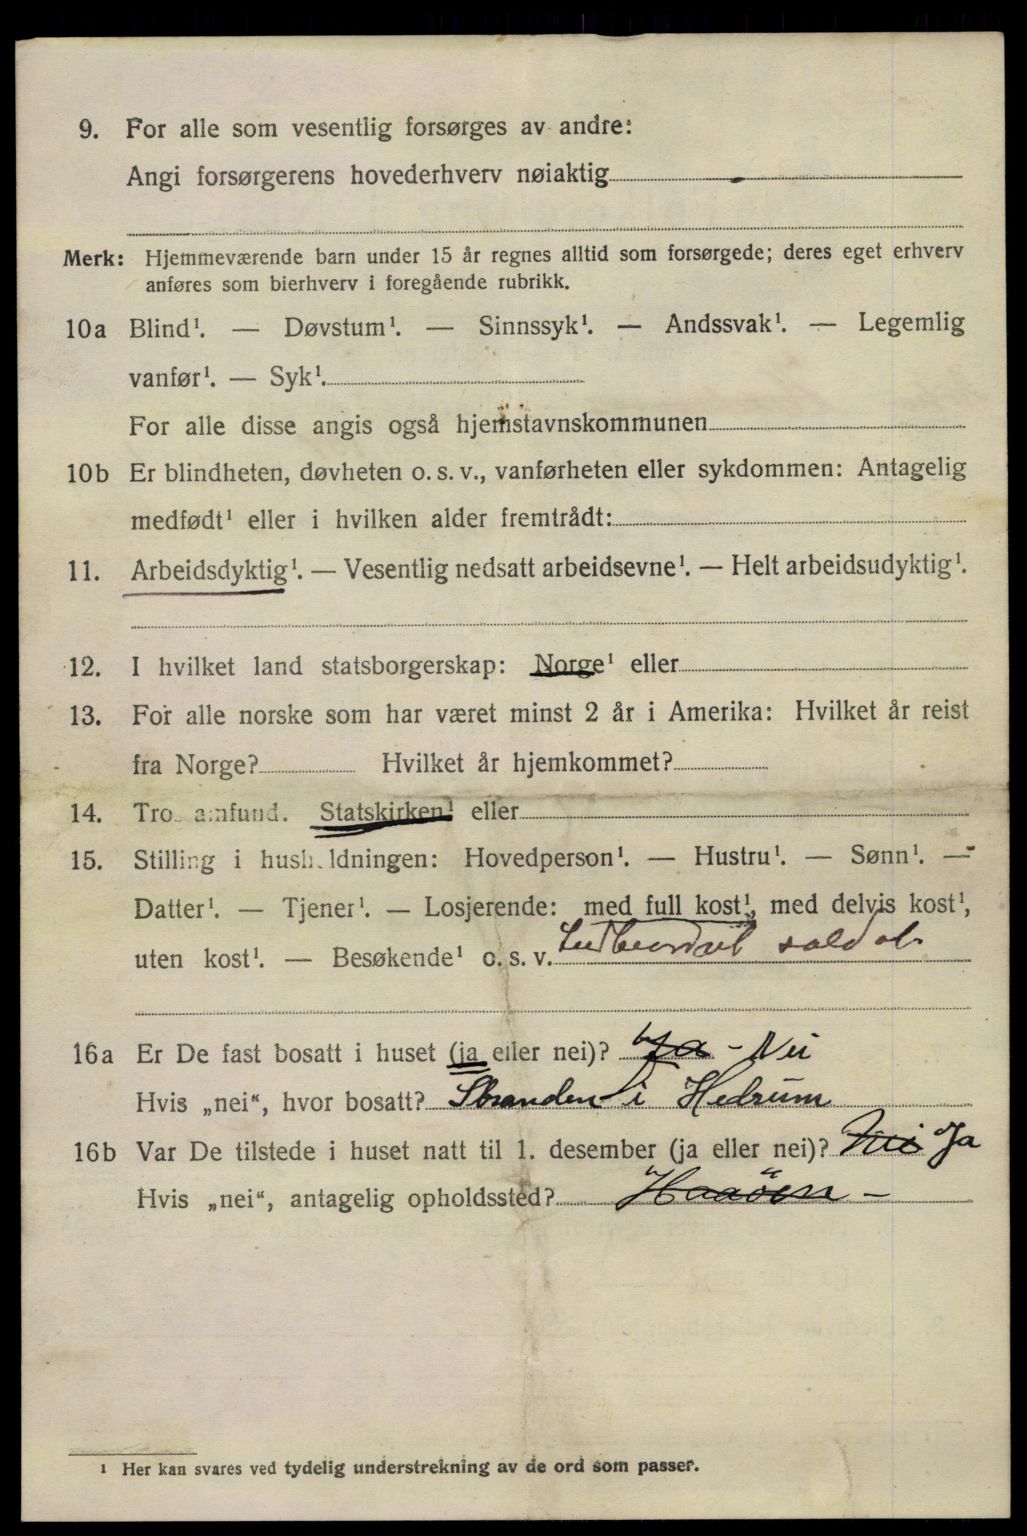 9. For alle som vesentlig forsørges av andre:
Angi forsørgerens hovederhverv nøiaktig
Merk: Hjemmeværende barn under 15 år regnes alltid som forsørgede; deres eget erhverv
anføres som bierhverv i foregående rubrikk.
10a Blind¹. — Døvstum¹. — Sinnssyk¹. — Andssvak¹. — Legemlig
vanfør¹. — Syk¹.
For alle disse angis også hjemstavnskommunen
10b Er blindheten, døvheten o. s. v., vanførheten eller sykdommen: Antagelig
medfødt¹ eller i hvilken alder fremtrådt:
11. Arbeidsdyktig¹. — Vesentlig nedsatt arbeidsevne¹. — Helt arbeidsudyktig¹.
12. I hvilket land statsborgerskap: Norge¹ eller
13. For alle norske som har været minst 2 år i Amerika: Hvilket år reist
fra Norge? Hvilket år hjemkommet?
14. Trossamfund. Statskirken¹ eller
15. Stilling i husholdningen: Hovedperson¹. — Hustru¹. — Sønn¹. —
Datter¹. — Tjener¹. — Losjerende: med full kost¹, med delvis kost¹,
uten kost¹. — Besøkende¹ o. s. v. soldat
16a Er De fast bosatt i huset (ja eller nei)? Ja - Nei
Hvis „nei“, hvor bosatt? Stranden i Hedrum
16b Var De tilstede i huset natt til 1. desember (ja eller nei)? Nei Ja
Hvis „nei“, antagelig opholdssted? Haaöen -
¹ Her kan svares ved tydelig understrekning av de ord som passer.